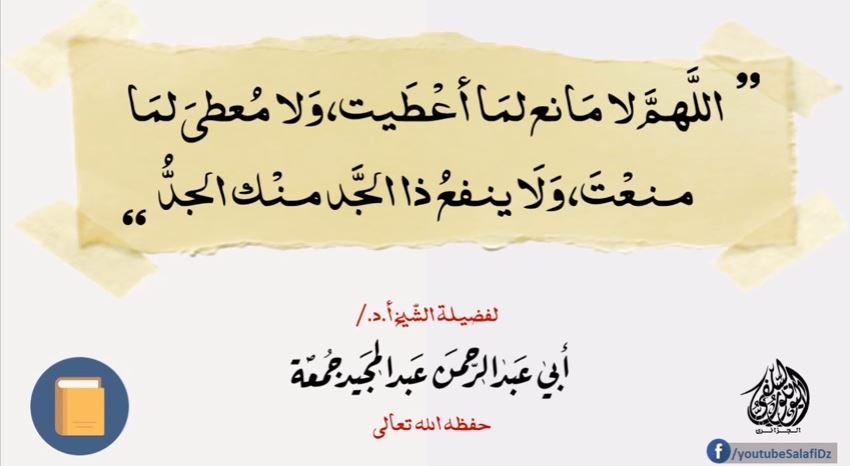 ” اللَّهمَّ لا مَانع لمَا أعْطَيت، وَلا مُعطيَ لمَا
منعْتَ، وَلَا ينفعُ ذا الجَّد منْك الجدُّ “
لفضيلة الشّيخ أ.د./
أبي عَبد الرّحمنَ عَبد المجَيد جُمعَة
حفظه الله تعالى
اليوتيوب السلفي
الجزائري
/youtubeSalafiDz